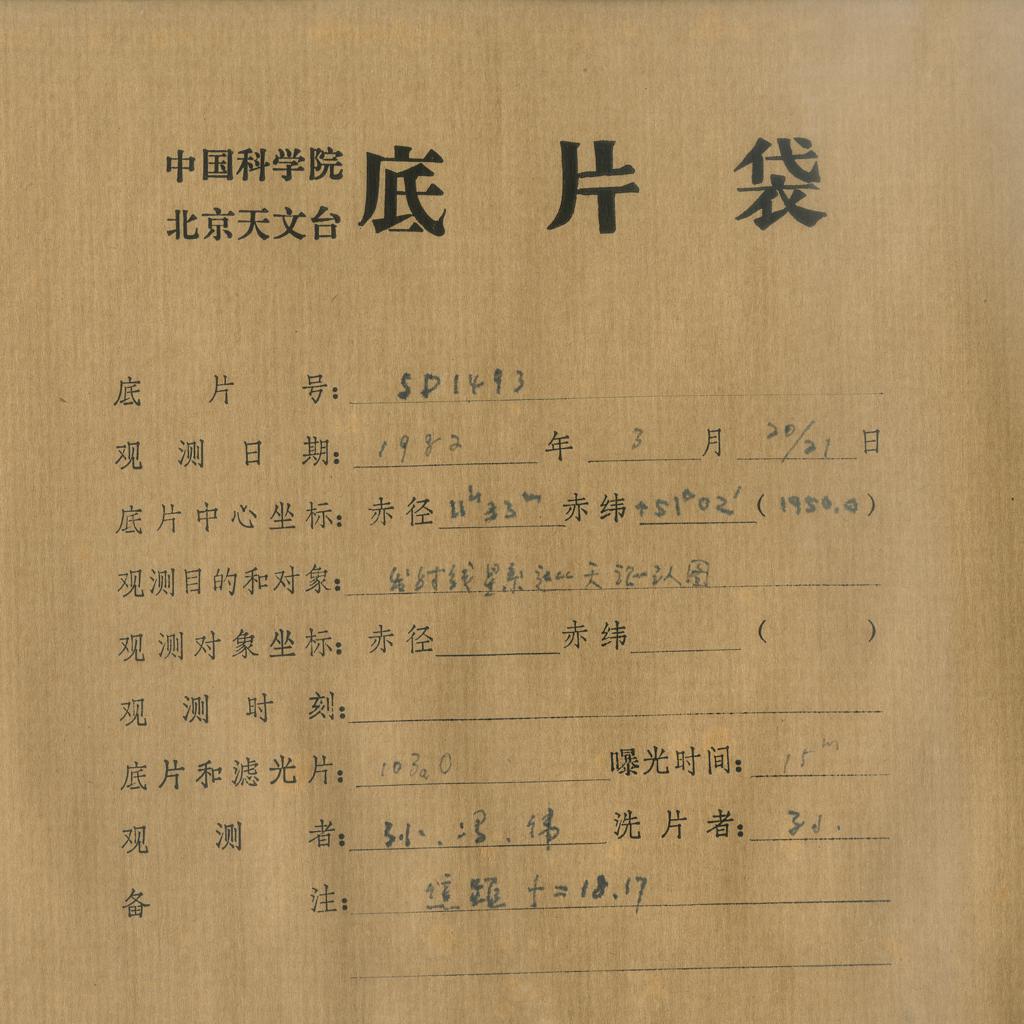 中国科学院
北京天文台
底片袋
底片号: SP1493
观测日期: 1982年3月20/21日
底片中心坐标: 赤径 11h33m 赤纬 +51°02′ (1950.0)
观测目的和对象: 星系 天 证认图
观测对象坐标: 赤径 赤纬 ( )
观测时刻:
底片和滤光片: 103aO 曝光时间: 15m
观测者: 孙、冯、纬 洗片者: 孙.
备注: 焦距 f=18.17